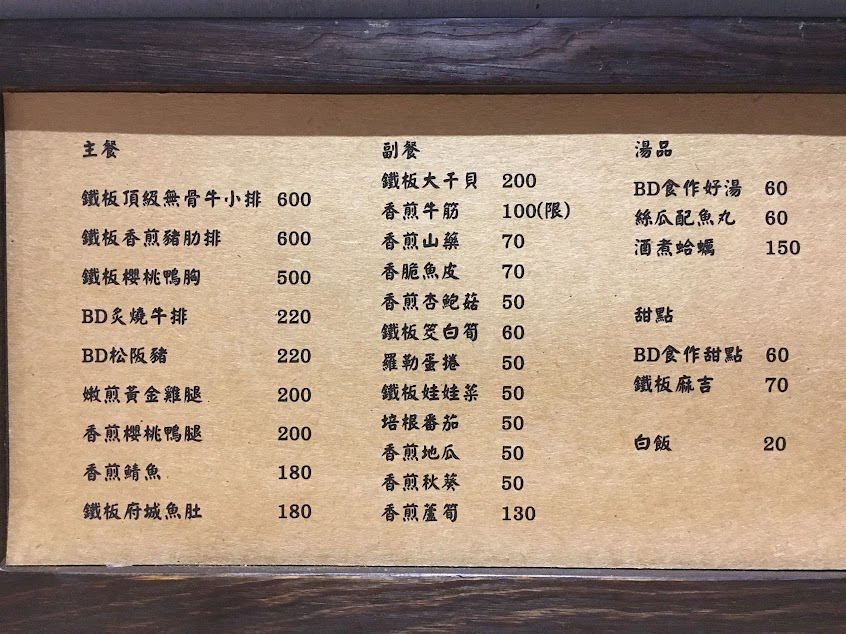 主餐
鐵板頂級無骨牛小排 600
鐵板香煎豬肋排 600
鐵板櫻桃鴨胸 500
BD炙燒牛排 220
BD松阪豬 220
嫩煎黃金雞腿 200
香煎櫻桃鴨腿 200
香煎鯖魚 180
鐵板府城魚肚 180
副餐
鐵板大干貝 200
香煎牛筋 100(限)
香煎山藥 70
香脆魚皮 70
香煎杏鮑菇 50
鐵板筊白筍 60
羅勒蛋捲 50
鐵板娃娃菜 50
培根番茄 50
香煎地瓜 50
香煎秋葵 50
香煎蘆筍 130
湯品
BD食作好湯 60
絲瓜配魚丸 60
酒煮蛤蠣 150
甜點
BD食作甜點 60
鐵板麻吉 70
白飯 20